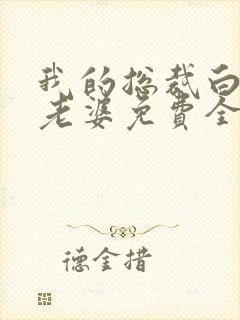 我的总裁白
老婆免费全
德金措